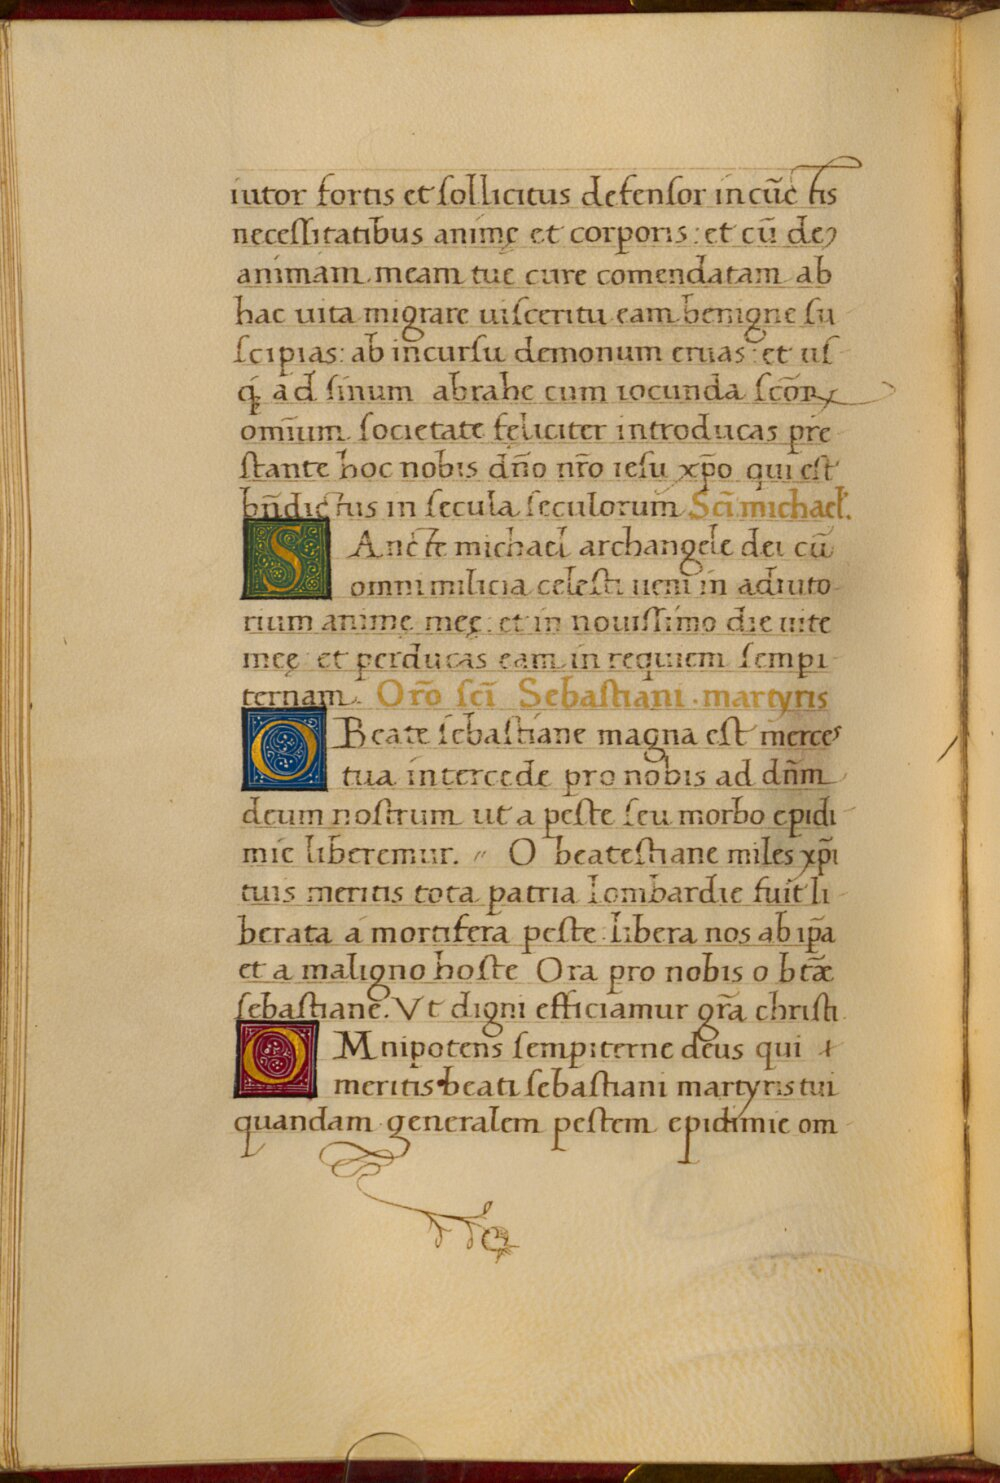 iutor fortis et ſollicitus defenſor in cūctis
neceſſitatibus animę et corporis: et cū de
animam meam tuę cure comendatam ab
hac uita migrare uiſceritu eam benigne ſu
ſcipias: ab incurſu demonum eruas: et uſ
q; ad ſinum abrahe cum iocunda ſcōꝝ
omīum ſocietate feliciter introducas pre
ſtante hoc nobis dn̄o nr̄o ieſu xp̄o qui eſt
bn̄dictus in ſecula ſeculorum Scī michael.
SAncte michael archangele dei cū
omni milicia celeſti ueni in adiuto
rium animę meę: et in nouiſſimo die uite
meę et perducas eam in requiem ſempi
ternam. Orō ſcī Sebaſtiani martyris
OBeate ſebaſtiane magna eſt merces
tua intercede pro nobis ad dn̄m
deum noſtrum ut a peſte ſeu morbo epidi
mie liberemur. // O beateſtiane miles xp̄i
tuis meritis tota patria lombardie fuit li
berata a mortifera peſte: libera nos ab ip̄a
et a maligno hoſte Ora pro nobis o bt̄æ
ſebaſtiane. Vt digni efficiamur gr̄a chriſti
OMnipotens ſempiterne deus qui
meritis beati ſebaſtiani martyris tui
quandam generalem peſtem epidimie om